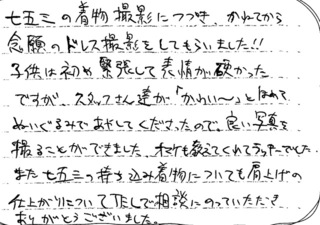 七五三の着物撮影につづき、かねてから
念願のドレス撮影をしてもらいました!!
子供は初め緊張して表情が硬かった
ですが、スタッフさん達が「かわい〜」とほめて
ぬいぐるみであやしてくださったので、良い写真を
撮ることができました。 教えてくれてラッキーでした。
また七五三の持ち込み着物についても肩上げの
仕上がりについてTELで相談にのっていただき
ありがとうございました。